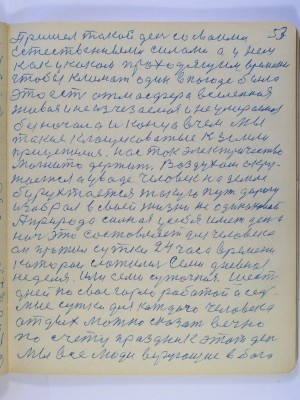 53
Пришел такой ден со своими
естественными силами а у них
как у каков проходящим времени
чтобы климат один в погоде было
Это ест атмасфера вселенная
живая и не изчезаемая и не умираемая
бы начала и конца в чем мы
такие к земли
притяжения. Как ток электричество
магнито держит. Воздухом окру-
жается а уваде человек на земле
барухтается такую пут дарогу
избрал в своей жизни не одинаковой
А природа силная у себя имеет ден и
ноч Это состовляет для человека
он прошил сутки 24 часа времени
катором сложилис Семи дневная
неделя. Или семи суточная. Шест
дней по своему горло работай а сед-
мые сутки для каждого человека
отдых можно сказат вечно
по счету праздник этот ден
Мы все люди верующие в Бога